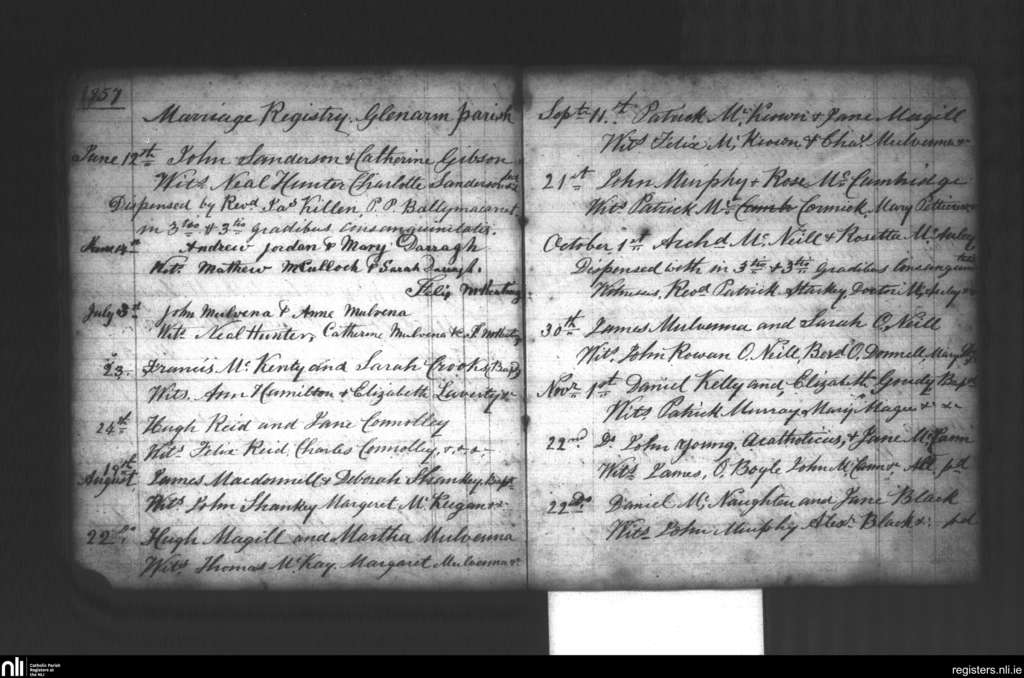 1859
Marriage Registry Glenarm Parish
June 12th John Sanderson & Catherine Gibson
Wits Neal Hunter Charlotte Sanderson
Dispensed by Revd Jas Killen, P.P. Ballymacarret
in 3tio & 3tio gradibus consanguinitatis.
June 14th Andrew Jordan & Mary Darragh
Wits. Mathew McCullock & Sarah Darragh.
Felix
July 3d John Mulvena & Anne Mulvena
Wits. Neal Hunter, Catherine Mulvena &c
23 Francis Mc Kenty and Sarah Crooks
Wits. Ann Hamilton & Elizabeth Laverty &c
24th Hugh Reid and Jane Connolley
Wits Felix Reid, Charles Connolley, &c
19th
August James Macdonnell & Deborah Shankey Bapt.
Wits John Shankey Margaret Mc Keegan &c
22 Do Hugh Magill and Martha Mulvenna
Wits Thomas McKay Margaret Mulvenna &c
Sept. 11th Patrick Mc Keown & Jane Magill
Wits Felix Mc Keown & Chas. Mulvenna &c
21st John Murphy & Rose Mc Cambridge
Wits Patrick Mc Camb Cormick, Mary
October 1st Archd Mc Neill & Rosetta Mc Auley
Dispensed with in 3tio & 3tio gradibus Consanguini
tis
Witness, Revd Patrick Starkey Doctor McAuley &c
30th James Mulvenna and Sarah O, Neill
Wits. John Rowan O, Neill, Bernd O, Donnell Mary
Novr 1st Daniel Kelly and, Elizabeth Goudy Bapt
Wits Patrick Murray Mary Magee & &c
22nd Do John Young, Acatholicus, & Jane McCann
Wits James, O, Boyle John McCann &c pd
22 Do Daniel Mc Naughten and Jane Black
Wits John Murphy Alexr Black &c pd
nli
Catholic Parish
Registers at
the NLI
registers.nli.ie